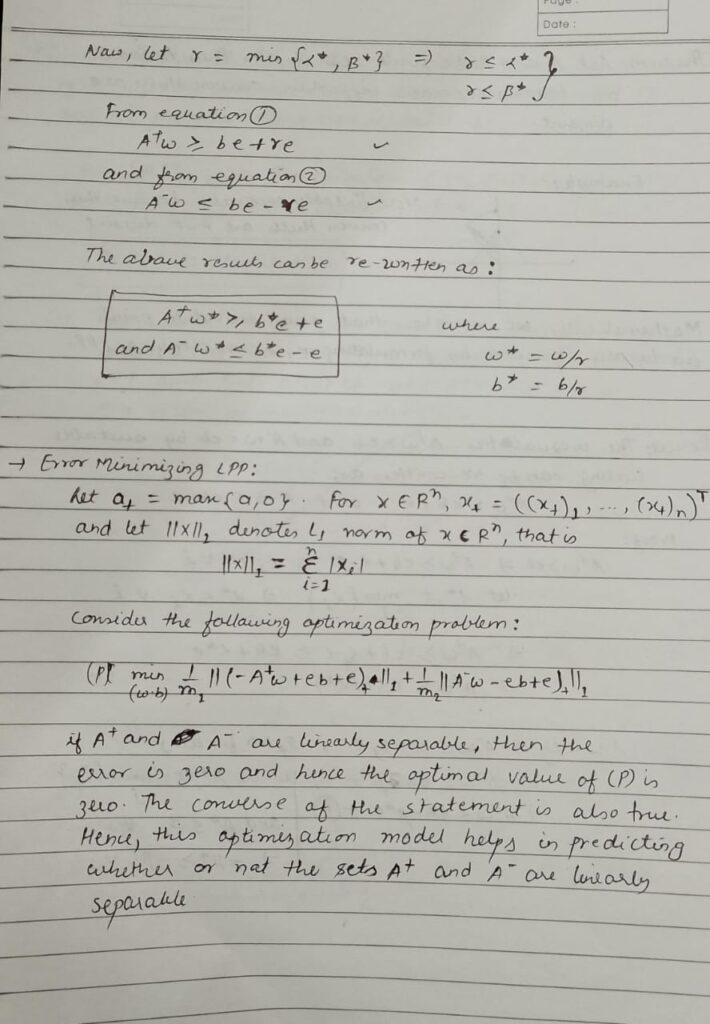 Page :
Date :
Now, let r = min {α*, β*} => r ≤ α* }
r ≤ β* }
From equation ①
A⁺w ≥ be + re ✓
and from equation ②
A⁻w ≤ be - re ✓
The above results can be re-written as :
A⁺w* ≥ b*e + e where
and A⁻w* ≤ b*e - e w* = w/r
b* = b/r
→ Error Minimizing LPP:
Let a₊ = max {a, 0}. For x ∈ Rⁿ, x₊ = ((x₊)₁, ..., (x₊)n)ᵀ
and let ||x||₁ denotes L₁ norm of x ∈ Rⁿ, that is
||x||₁ = Σ |xᵢ|
n
i=1
Consider the following optimization problem :
(P) min 1/m₁ ||(-A⁺w + eb + e)₊||₁ + 1/m₂ ||A⁻w - eb + e)₊||₁
(w,b)
if A⁺ and A⁻ are linearly separable, then the
error is zero and hence the optimal value of (P) is
zero. The converse of the statement is also true.
Hence, this optimization model helps in predicting
whether or not the sets A⁺ and A⁻ are linearly
separable